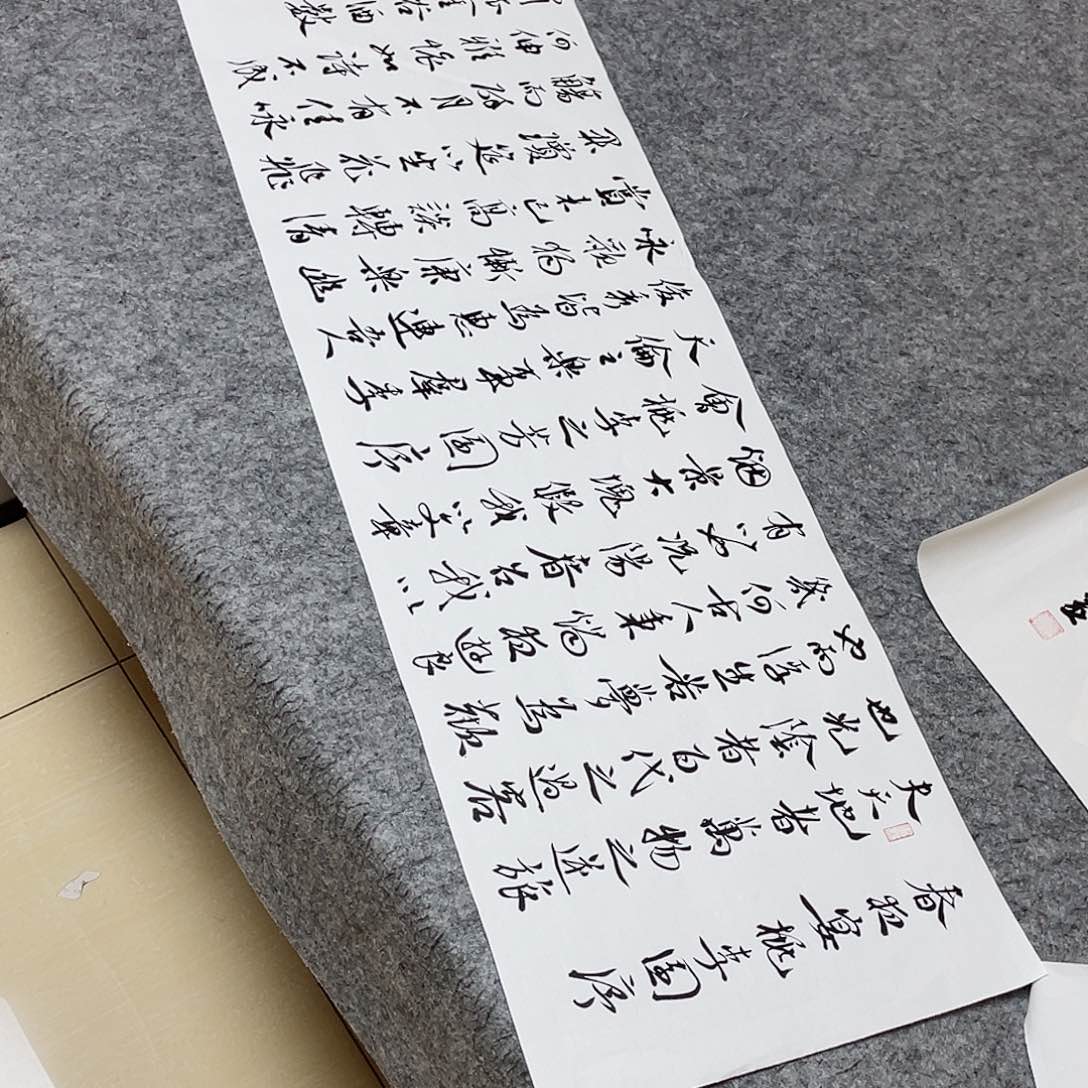 春夜宴桃李園序
夫天地者萬物之逆旅
也光陰者百代之過客
也而浮生若夢為歡
幾何古人秉燭夜遊良
有以也況陽春召我以
烟景大塊假我以文章
會桃李之芳園序
天倫之樂事群季
俊秀皆為惠連吾人
咏歌獨慚康樂幽
賞未已高談轉清
開瓊筵以坐花飛
觴而醉月不有佳咏
何伸雅懷如詩不成
依金谷酒數